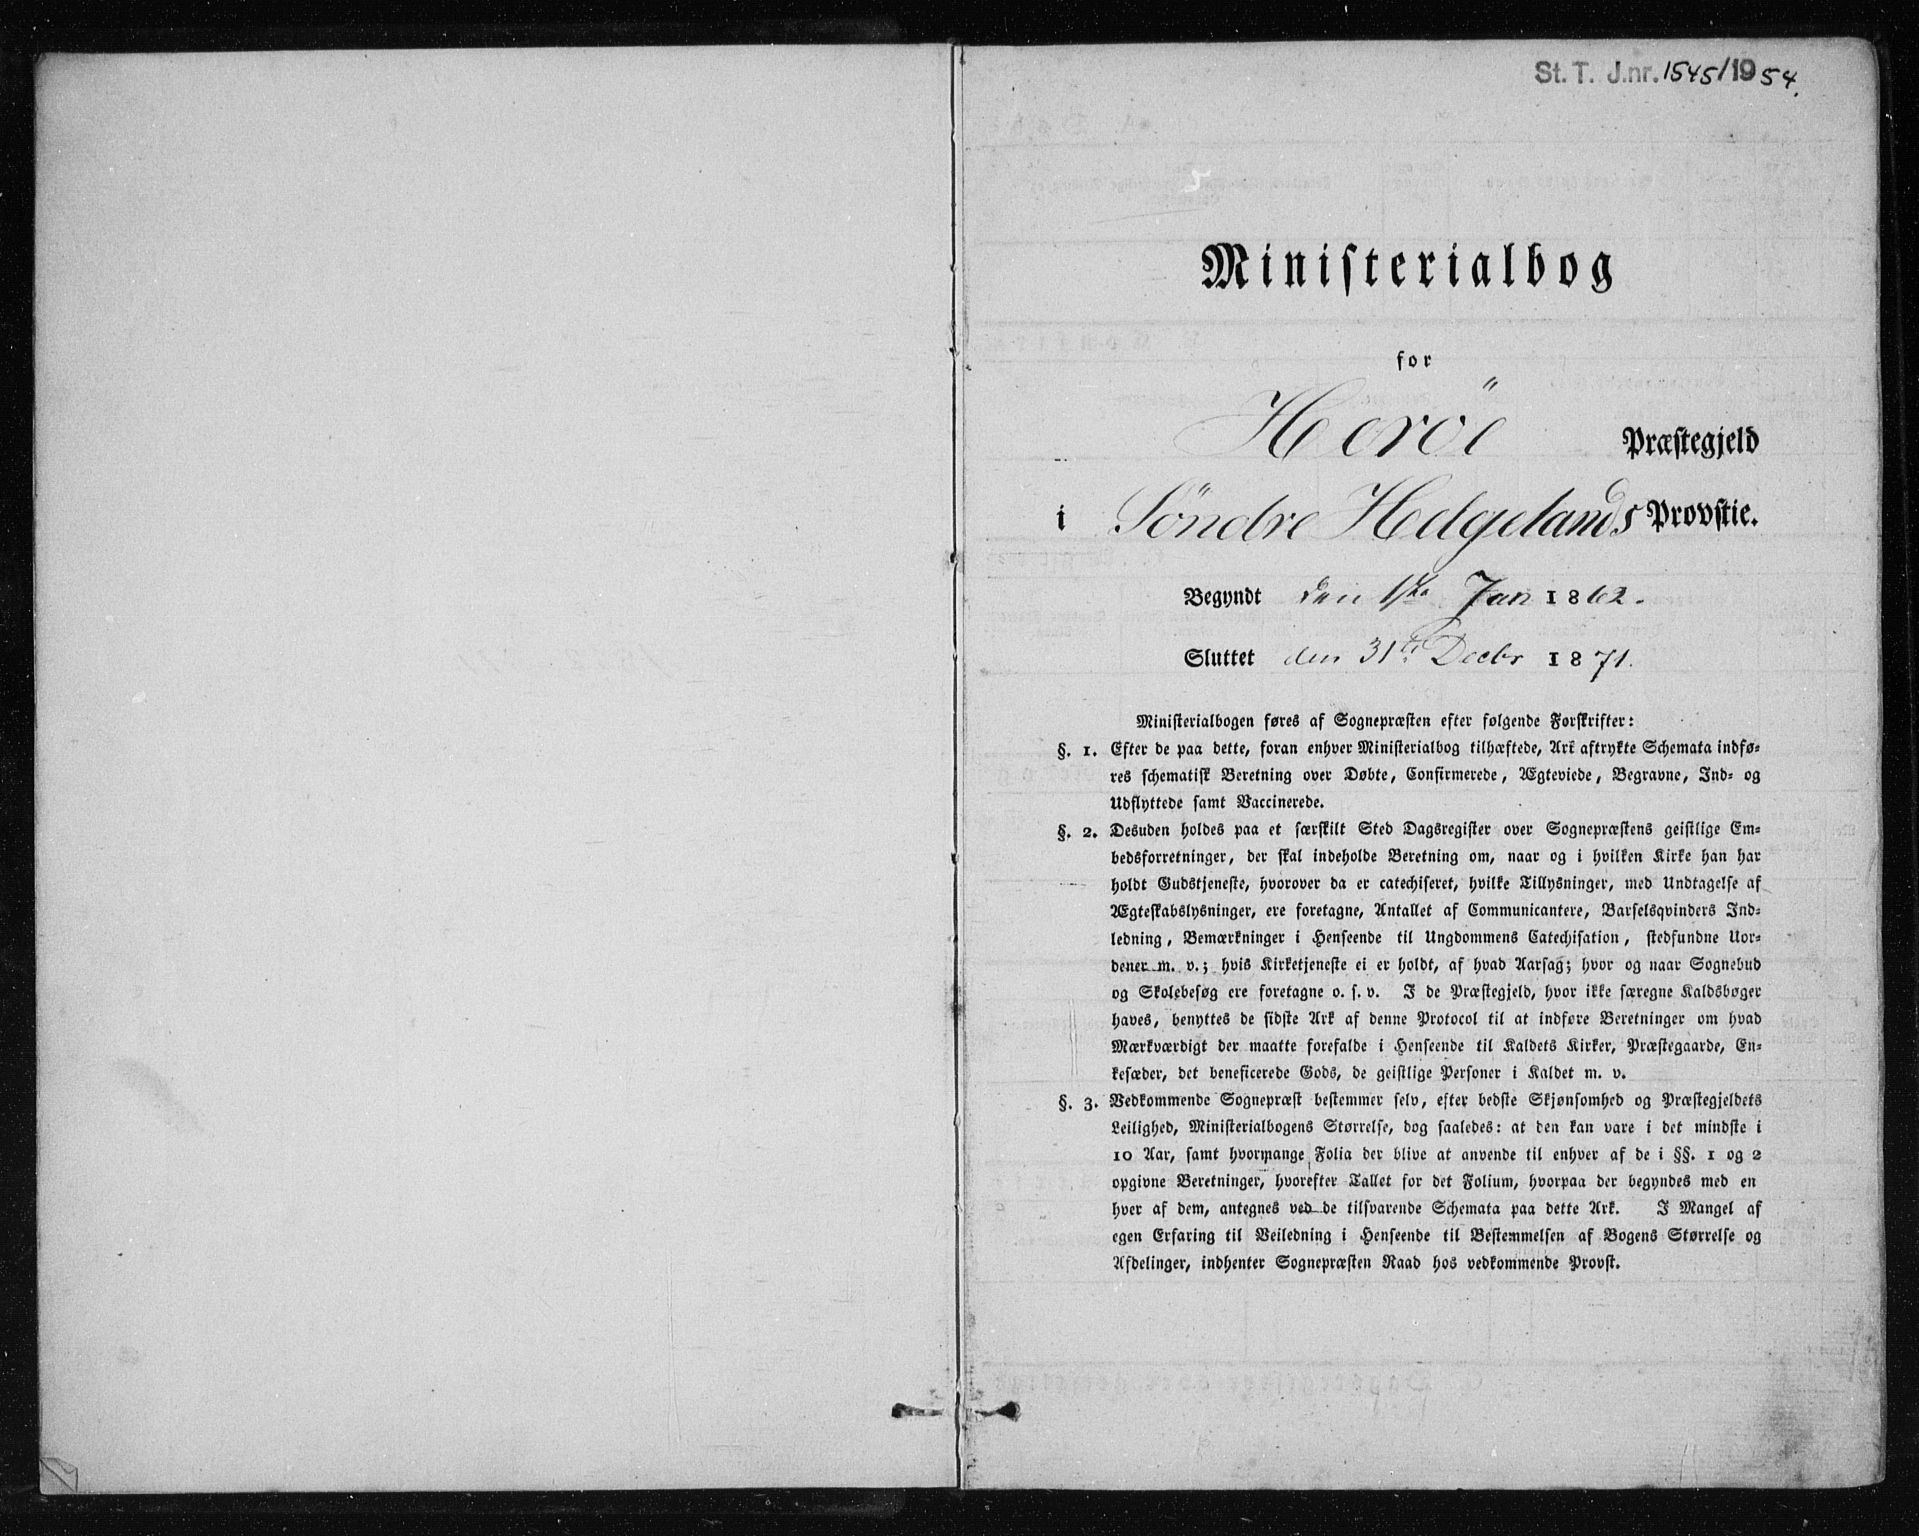 St. T. J.nr. 1545/1954.
Ministerialbog
for
Heröe Præstegjeld
i Søndre Helgelands Provstie.
Begyndt den 1ste Jan 1862.
Sluttet den 31te Decbr 1871.
Ministerialbogen føres af Sognepræsten efter følgende Forskrifter:
§. 1. Efter de paa dette, foran enhver Ministerialbog tilhæftede, Ark aftrykte Schemata indfø-
res schematisk Beretning over Døbte, Confirmerede, Ægteviede, Begravne, Ind- og
Udflyttede samt Vaccinerede.
§. 2. Desuden holdes paa et særskilt Sted Dagsregister over Sognepræstens geistlige Em-
bedsforretninger, der skal indeholde Beretning om, naar og i hvilken Kirke han har
holdt Gudstjeneste, hvorover da er catechiseret, hvilke Tillysninger, med Undtagelse af
Ægteskabslysninger, ere foretagne, Antallet af Communicantere, Barselsqvinders Ind-
ledning, Bemærkninger i Henseende til Ungdommens Catechisation, stedfundne Uor-
dener m. v.; hvis Kirketjeneste ei er holdt, af hvad Aarsag; hvor og naar Sognebud
og Skolebesøg ere foretagne o. s. v. I de Præstegjeld, hvor ikke særegne Kaldsbøger
haves, benyttes de sidste Ark af denne Protocol til at indføre Beretninger om hvad
Mærkværdigt der maatte forefalde i Henseende til Kaldets Kirker, Præstegaarde, En-
kesæder, det beneficerede Gods, de geistlige Personer i Kaldet m. v.
§. 3. Vedkommende Sognepræst bestemmer selv, efter bedste Skjønsomhed og Præstegjeldets
Leilighed, Ministerialbogens Størrelse, dog saaledes: at den kan vare i det mindste i
10 Aar, samt hvormange Folia der blive at anvende til enhver af de i §§. 1 og 2
opgivne Beretninger, hvorefter Tallet for det Folium, hvorpaa der begyndes med en
hver af dem, antegnes ved de tilsvarende Schemata paa dette Ark. I Mangel af
egen Erfaring til Veiledning i Henseende til Bestemmelsen af Bogens Størrelse og
Afdelinger, indhenter Sognepræsten Raad hos vedkommende Provst.